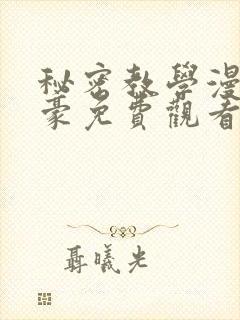 秘密教學漫
豪免費觀看
聶曦光